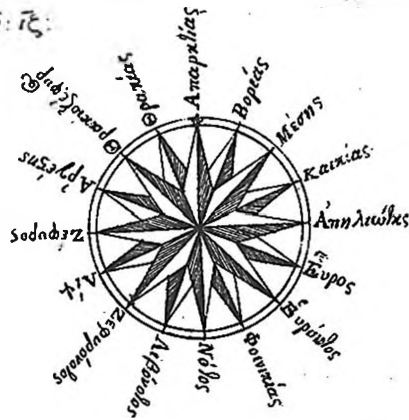 Ἀπαρκτίας
Βορέας
Μέσης
Καικίας
Ἀπηλιώτης
Εὖρος
Φοινικίας
Νότος
Λιβόνοτος
Ζεφυρόνοτος
Λίψ
Ζέφυρος
Ἀργέςης
Θρακίας